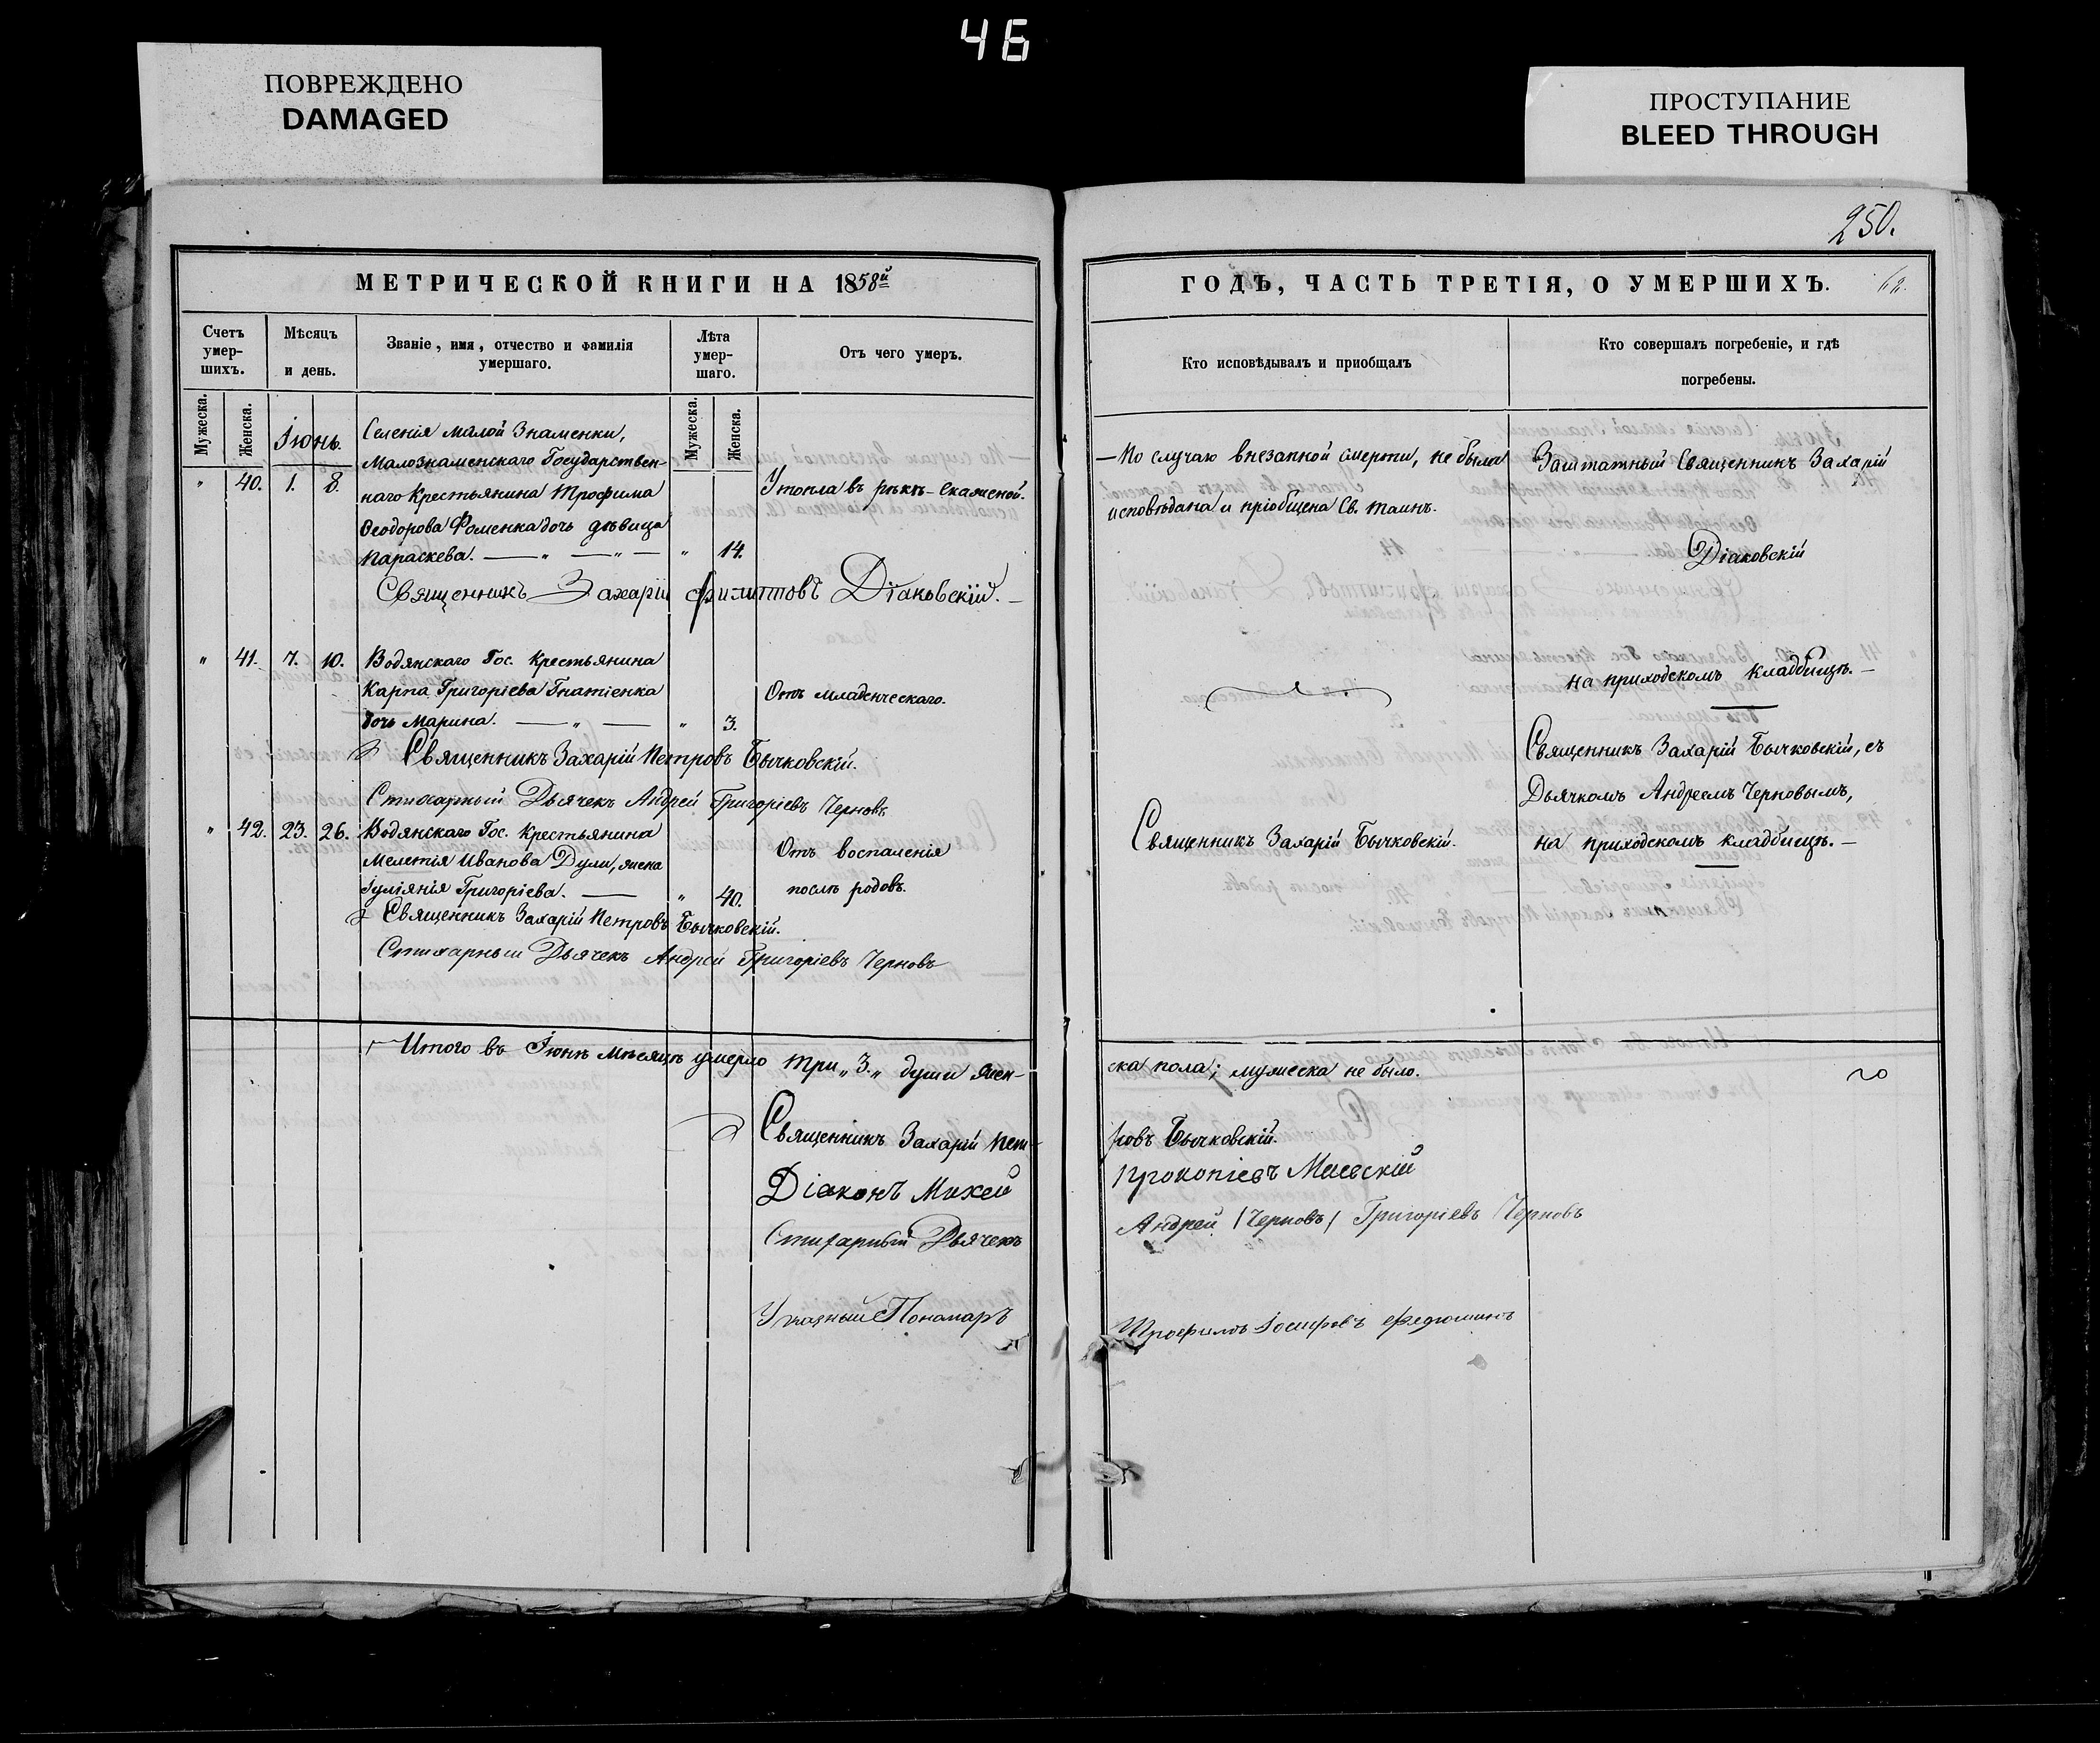 46
ПОВРЕЖДЕНО
DAMAGED
ПРОСТУПАНИЕ
BLEED THROUGH
250.
МЕТРИЧЕСКОЙ КНИГИ НА 1858й
Счетъ умер-шихъ.
Мѣсяцъ и день.
Званіе, имя, отчество и фамилія умершаго.
Лѣта умер-шаго.
Отъ чего умеръ.
Мужеска.
Женска.
Іюнь.
Мужеска.
Женска.
Селенія Малой Знаменки,
Малознаменскаго Государствен-
" 40. 1. 8. наго Крестьянина Трофима Утопла въ рѣкѣ
Ѳеодорова Фоменка дочь дѣвица
Параскева. — " — " — " 14.
Священникъ Захарій Филиповъ Діаковскій.
" 41. 7. 10. Водянскаго Гос. Крестьянина
Карпа Григоріева Гнатіенка Отъ младенческаго.
дочь Марина. — " — " 3.
Священникъ Захарій Петровъ Бычковскій.
Стихарный Дьячекъ Андрей Григоріевъ Черновъ
" 42. 23. 26. Водянскаго Гос. Крестьянина
Мелетія Иванова Дули, жена Отъ воспаленія
Іуліянія Григоріева. — " 40. послѣ родовъ.
Священникъ Захарій Петровъ Бычковскій.
Стихарный Дьячекъ Андрей Григоріевъ Черновъ
Итого въ Іюнѣ мѣсяцѣ умерло три „3„ души жен-
Священникъ Захарій Пет-
Діаконъ Михей
Стихарный Дьячекъ
Указный Пономарь
ГОДЪ, ЧАСТЬ ТРЕТІЯ, О УМЕРШИХЪ.
Кто исповѣдывалъ и приобщалъ
Кто совершалъ погребеніе, и гдѣ погребены.
— По случаю внезапной смерти, не была Заштатный Священникъ Захарій
исповѣдана и пріобщена Св. таинъ.
Діаковскій
на приходскомъ кладбищѣ. —
Священникъ Захарій Бычковскій, съ
Дьячкомъ Андреемъ Черновымъ,
Священникъ Захарій Бычковскій. на приходскомъ кладбищѣ. —
ска пола; мужеска не было.
ровъ Бычковскій.
Прокопіевъ Маевскій
Андрей /Черновъ/ Григоріевъ Черновъ
Трофимъ Іосифовъ